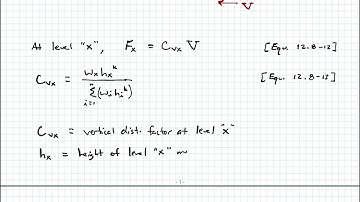 V
At level "x", Fx = Cvx V [Equ. 12.8-12]
Cvx = wx hx^k / Σ i=1 (wi hi^k) [Equ. 12.8-13]
Cvx = vertical dist. factor at level "x"
hx = height of level "x"
-1-